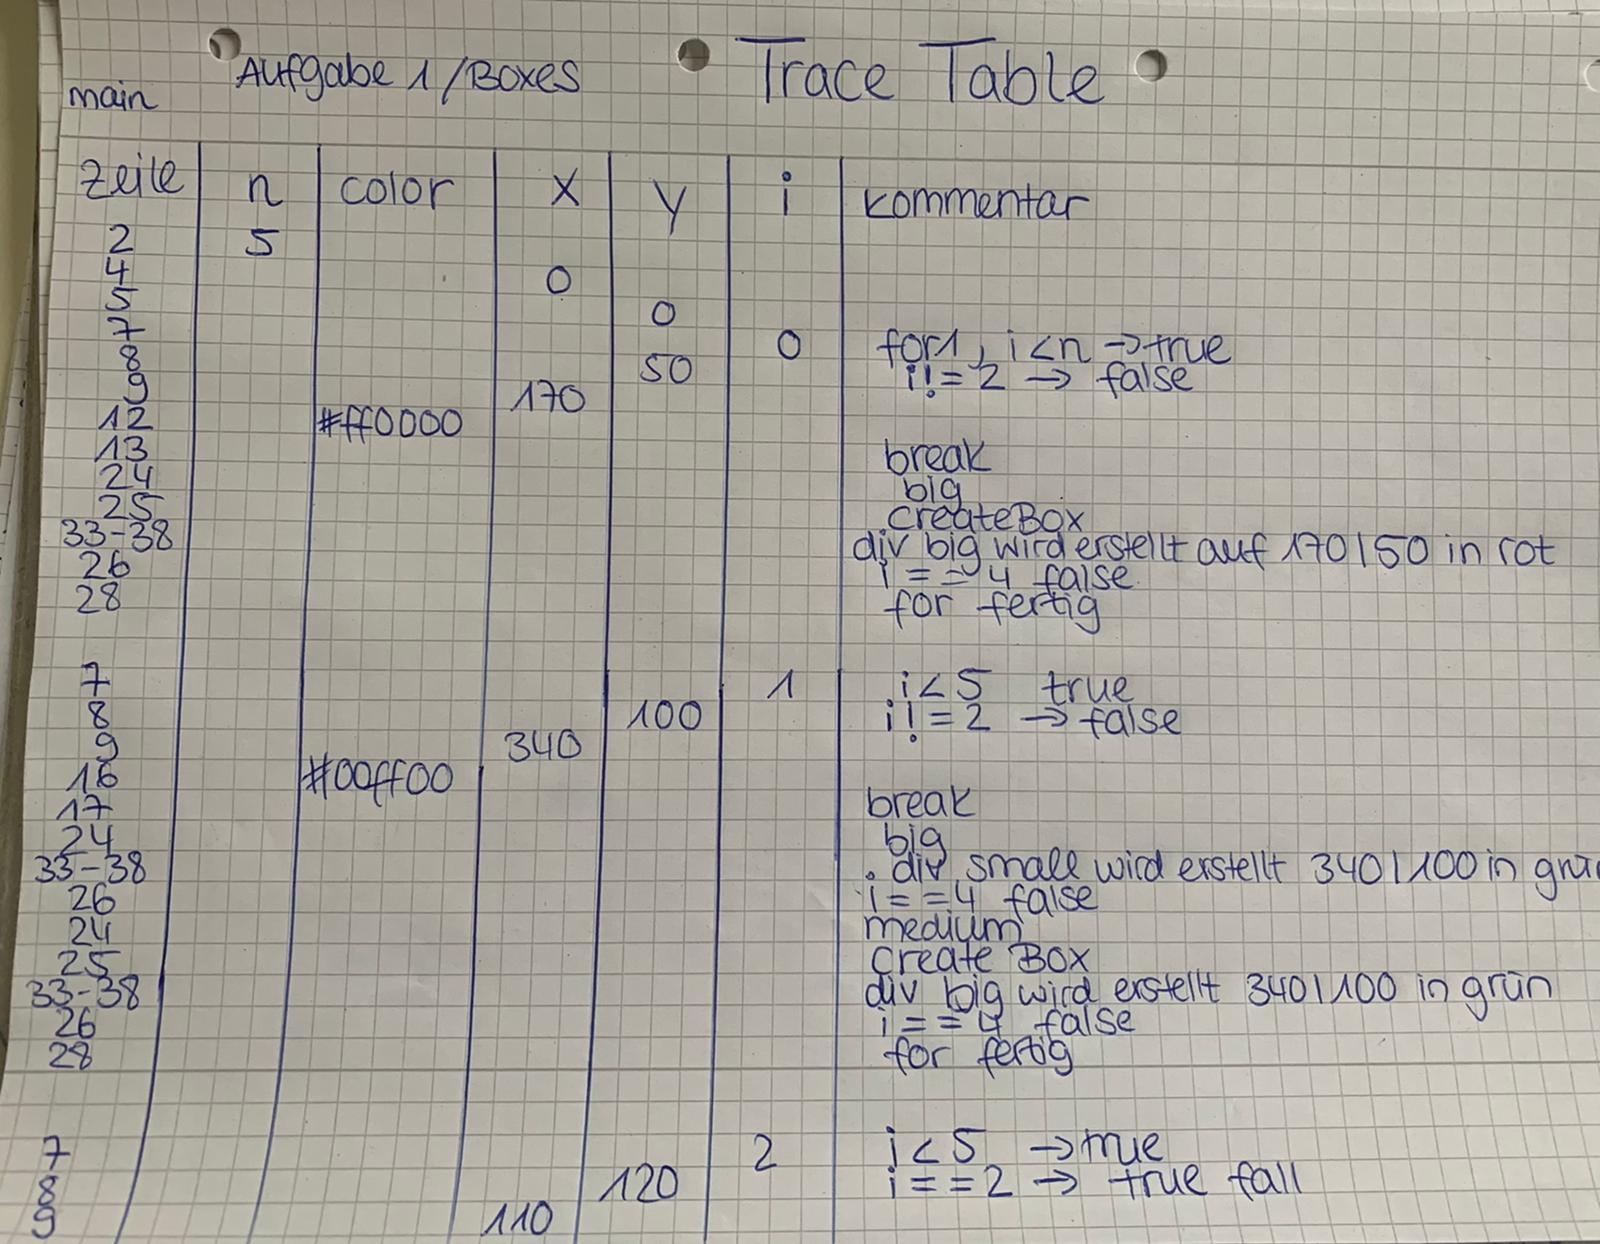 Aufgabe 1/Boxes
Trace Table
main
Zeile n color x y i kommentar
2 5
4 0
5 0
7 0 for1, i<n →true
8 50 i!=2 → false
9 170
12 #ff0000
13 break
24 big
25 createBox
33-38 div big wird erstellt auf 170|50 in rot
26 i==4 false
28 for fertig
7 1 i<5 true
8 100 i!=2 → false
9 340
16 #00ff00
17 break
24 big
33-38 . div small wird erstellt 340|100 in grün
26 i==4 false
24 medium
25 create Box
33-38 div big wird erstellt 340|100 in grün
26 i==4 false
28 for fertig
7 2 i<5 →true
8 120 i==2 → true fall
9 110